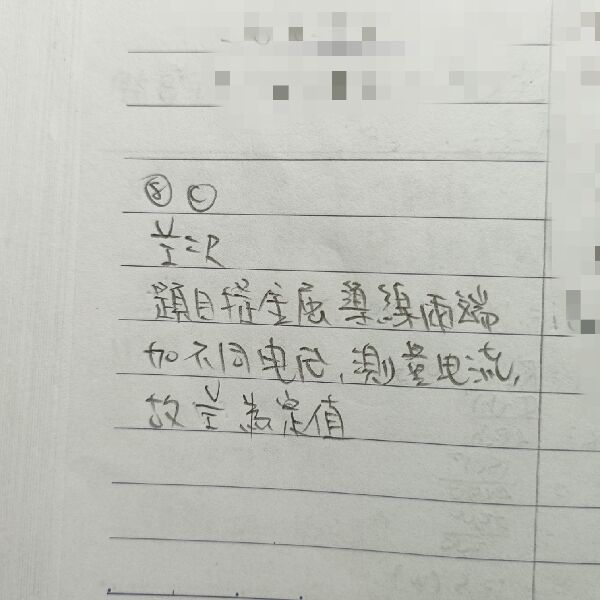 ⑧ Ⓒ
V/I=R
題目提金屬導線兩端
加不同电压,測量电流,
故 V/I 為定值